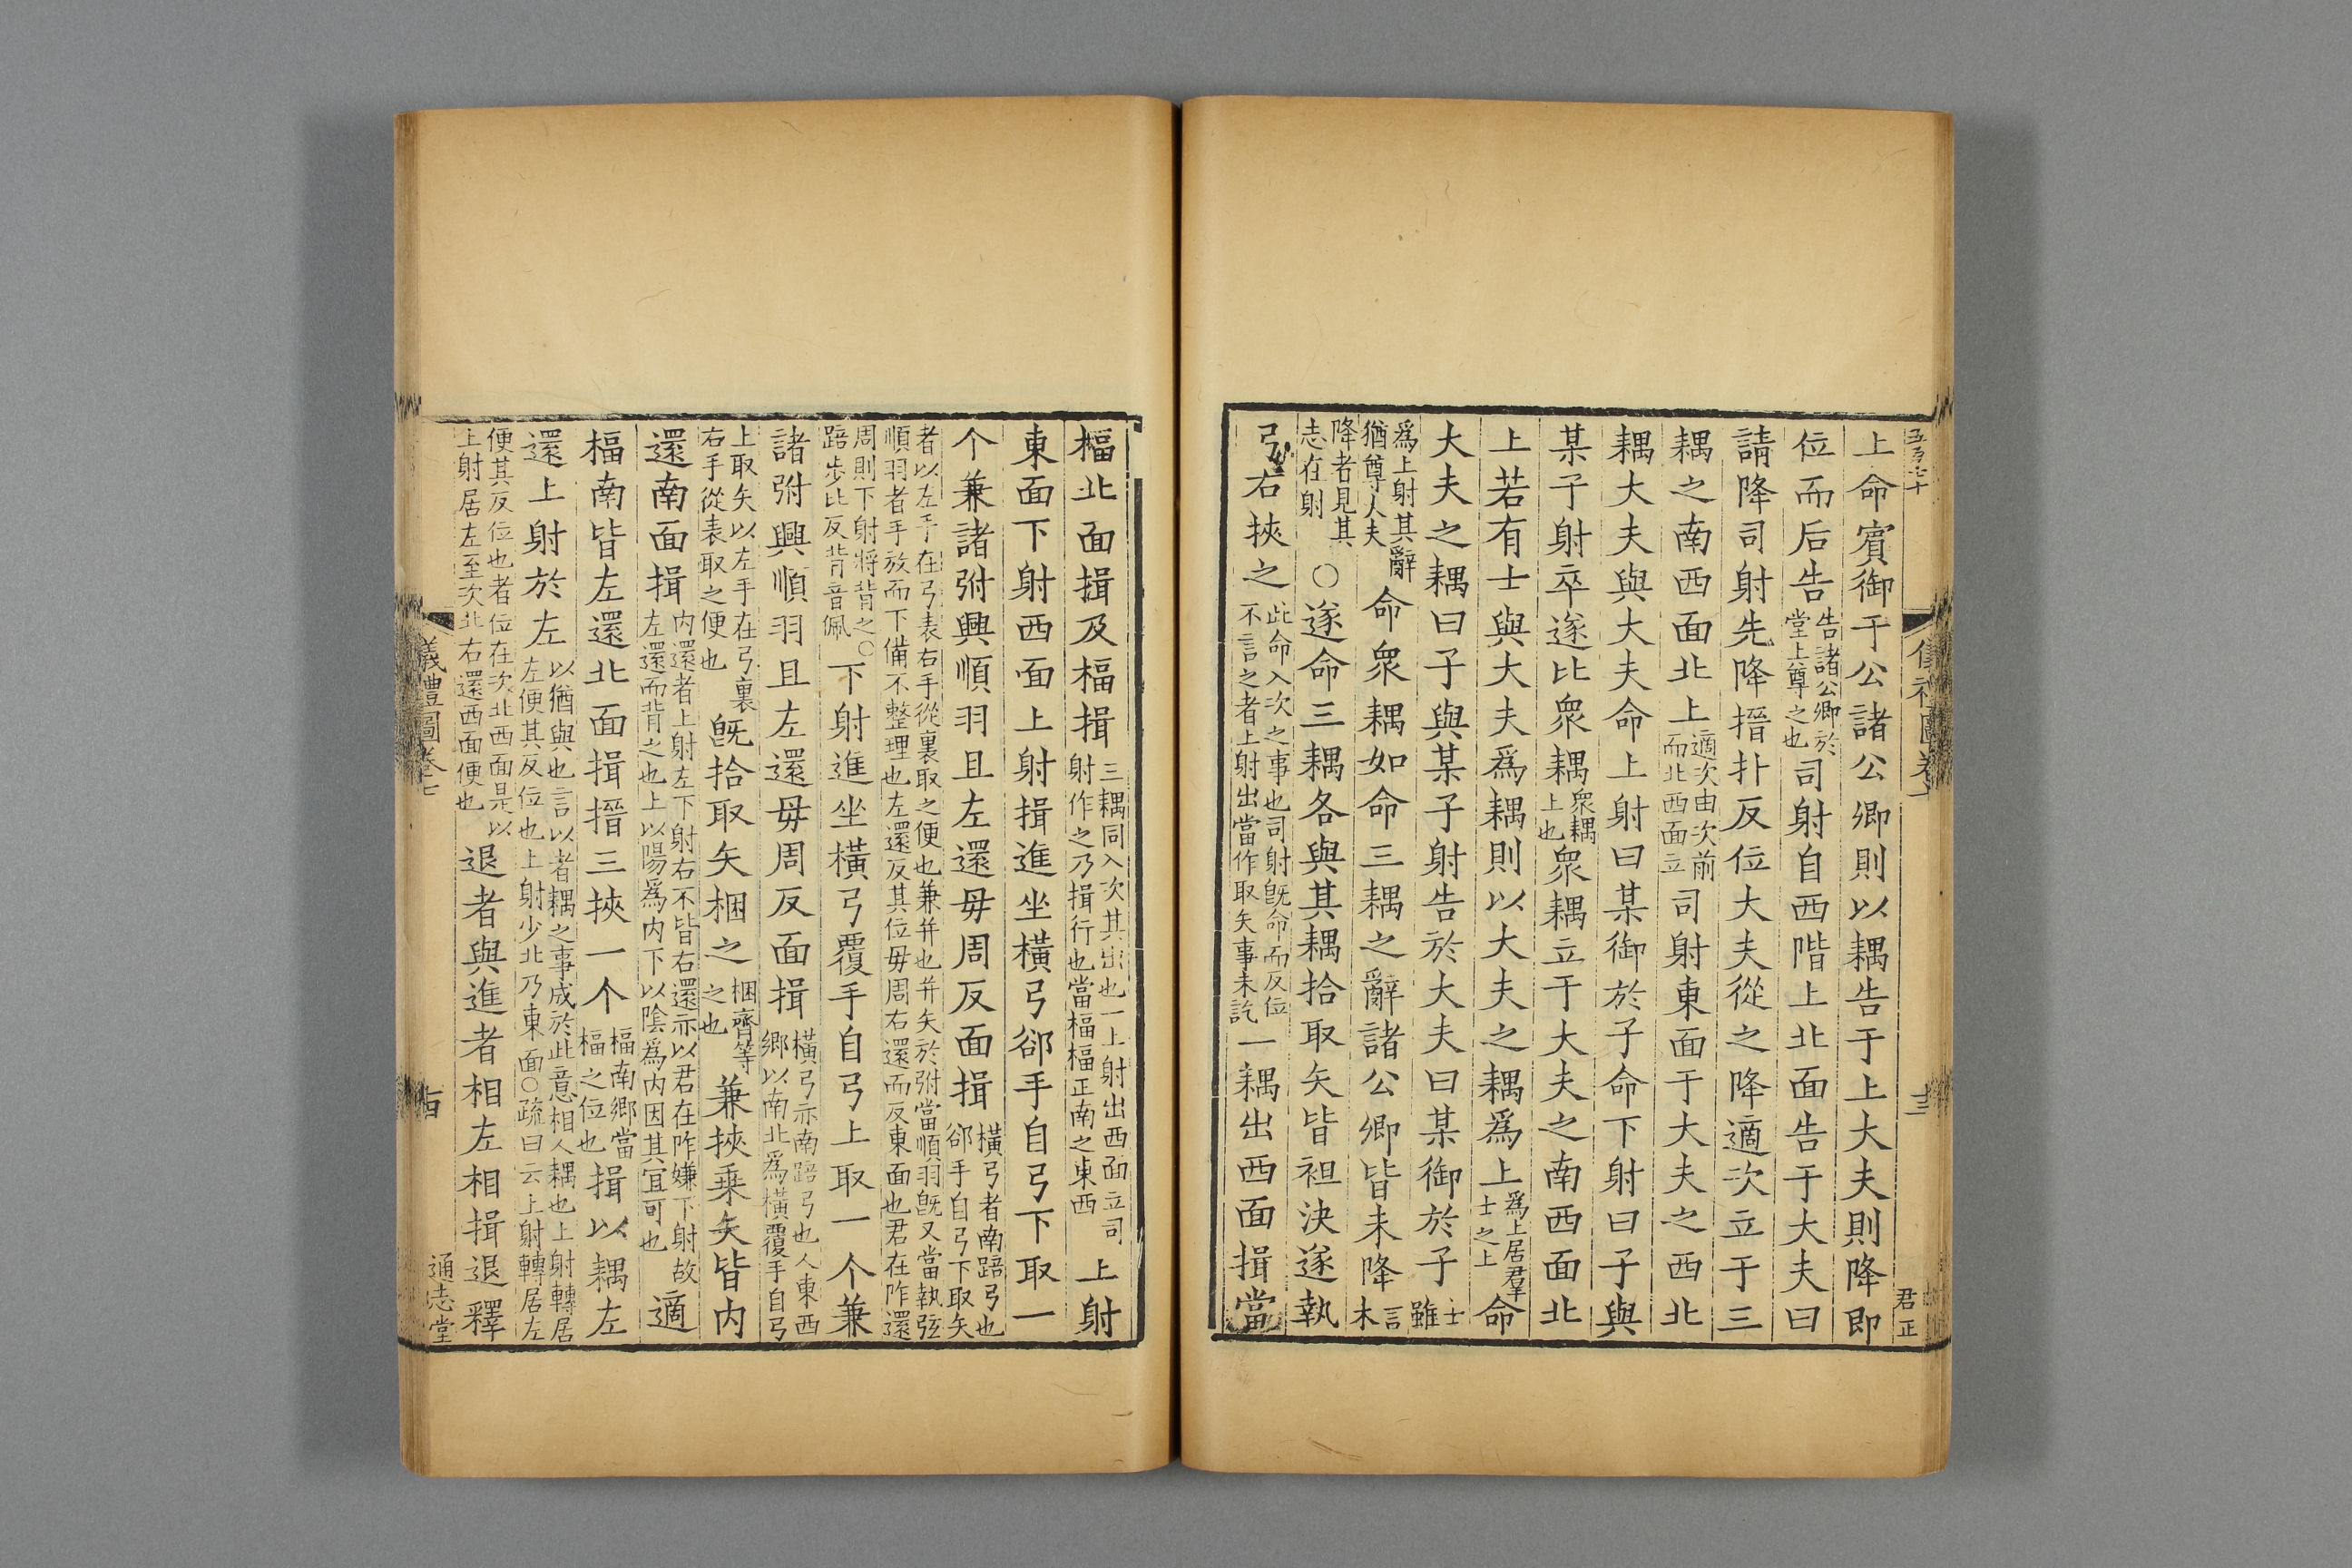 上命賓御于公諸公卿則以耦告于上大夫則降即
位而后告告諸公卿於堂上尊之也司射自西階上北面告于大夫曰
請降司射先降搢扑反位大夫從之降適次立于三
耦之南西面北上適次由次前而北西面立司射東面于大夫之西北
耦大夫與大夫命上射曰某御於子命下射曰子與
某子射卒遂比衆耦衆耦上也衆耦立于大夫之南西面北
上若有士與大夫爲耦則以大夫之耦爲上爲上居羣士之上命
大夫之耦曰子與某子射告於大夫曰某御於子士雖
爲上射其辭猶尊大夫命衆耦如命三耦之辭諸公卿皆未降言未
降者見其志在射○遂命三耦各與其耦拾取矢皆袒決遂執
弓右挾之此命入次之事也司射旣命而反位不言之者上射出當作取矢事未訖一耦出西面揖當
楅北面揖及楅揖三耦同入次其出也一上射出西面立司射作之乃揖行也當楅楅正南之東西上射
東面下射西面上射揖進坐橫弓郤手自弓下取一
个兼諸弣興順羽且左還毋周反面揖橫弓者南踣弓也郤手自弓下取矢
者以左手在弓表右手從裏取之便也兼幷也幷矢於弣當順羽旣又當執弦順羽者手放而下備不整理也左還反其位毋周右還而反東面也君在阼還
周則下射將背之○踣步比反背音佩下射進坐橫弓覆手自弓上取一个兼
諸弣興順羽且左還毋周反面揖橫弓亦南踣弓也人東西鄉以南北爲橫覆手自弓
上取矢以左手在弓裏右手從表取之便也旣拾取矢梱之梱齊等之也兼挾乗矢皆内
還南面揖内還者上射左下射右不皆右還亦以君在阼嫌下射故左還而背之也上以陽爲内下以陰爲内因其宜可也適
楅南皆左還北面揖搢三挾一个楅南鄉當楅之位也揖以耦左
還上射於左以猶與也言以者耦之事成於此意相人耦也上射轉居左便其反位也上射少北乃東面○疏曰云上射轉居左
便其反位也者位在次北西面是以上射居左至次北右還西面便也退者與進者相左相揖退釋
儀禮圖卷七
通志堂
君正